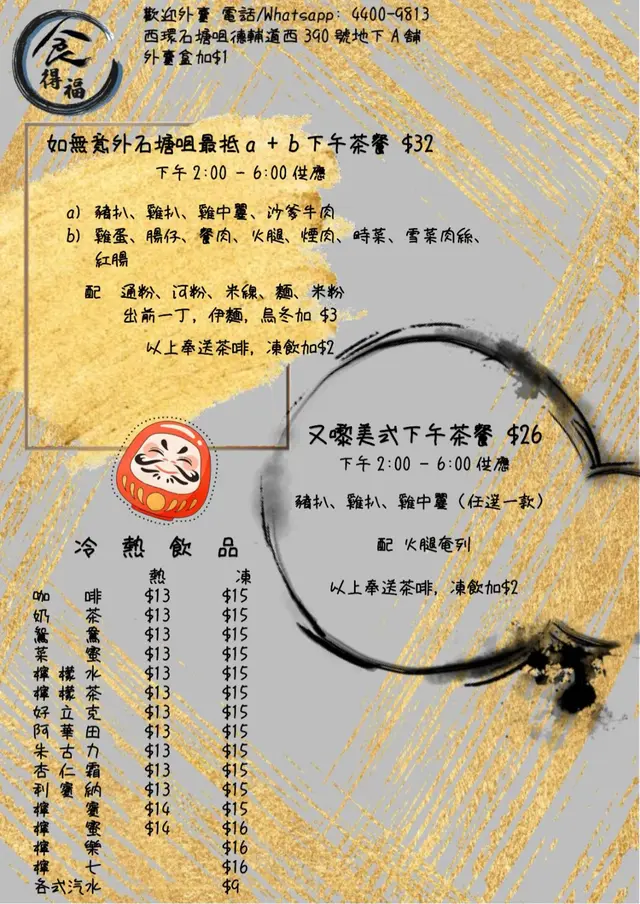 食得福
歡迎外賣 電話/Whatsapp: 4400-9813
西環石塘咀德輔道西390號地下A舖
外賣盒加$1
如無意外石塘咀最抵a + b下午茶餐 $32
下午2:00 - 6:00供應
a) 豬扒、雞扒、雞中翼、沙爹牛肉
b) 雞蛋、腸仔、餐肉、火腿、煙肉、時菜、雪菜肉絲、
紅腸
配 通粉、河粉、米線、麵、米粉
出前一丁, 伊麵, 烏冬加 $3
以上奉送茶啡, 凍飲加$2
又嚟美式下午茶餐 $26
下午2:00 - 6:00供應
豬扒、雞扒、雞中翼（任選一款）
配 火腿奄列
以上奉送茶啡, 凍飲加$2
冷熱飲品
熱 凍
咖啡 $13 $15
奶茶 $13 $15
鴛鴦 $13 $15
菜蜜 $13 $15
檸檬水 $13 $15
檸檬茶 $13 $15
好立克 $13 $15
阿華田 $13 $15
朱古力 $13 $15
杏仁霜 $13 $15
利賓納 $13 $15
檸賓 $14 $15
檸蜜 $14 $16
檸樂 $16
檸七 $16
各式汽水 $9